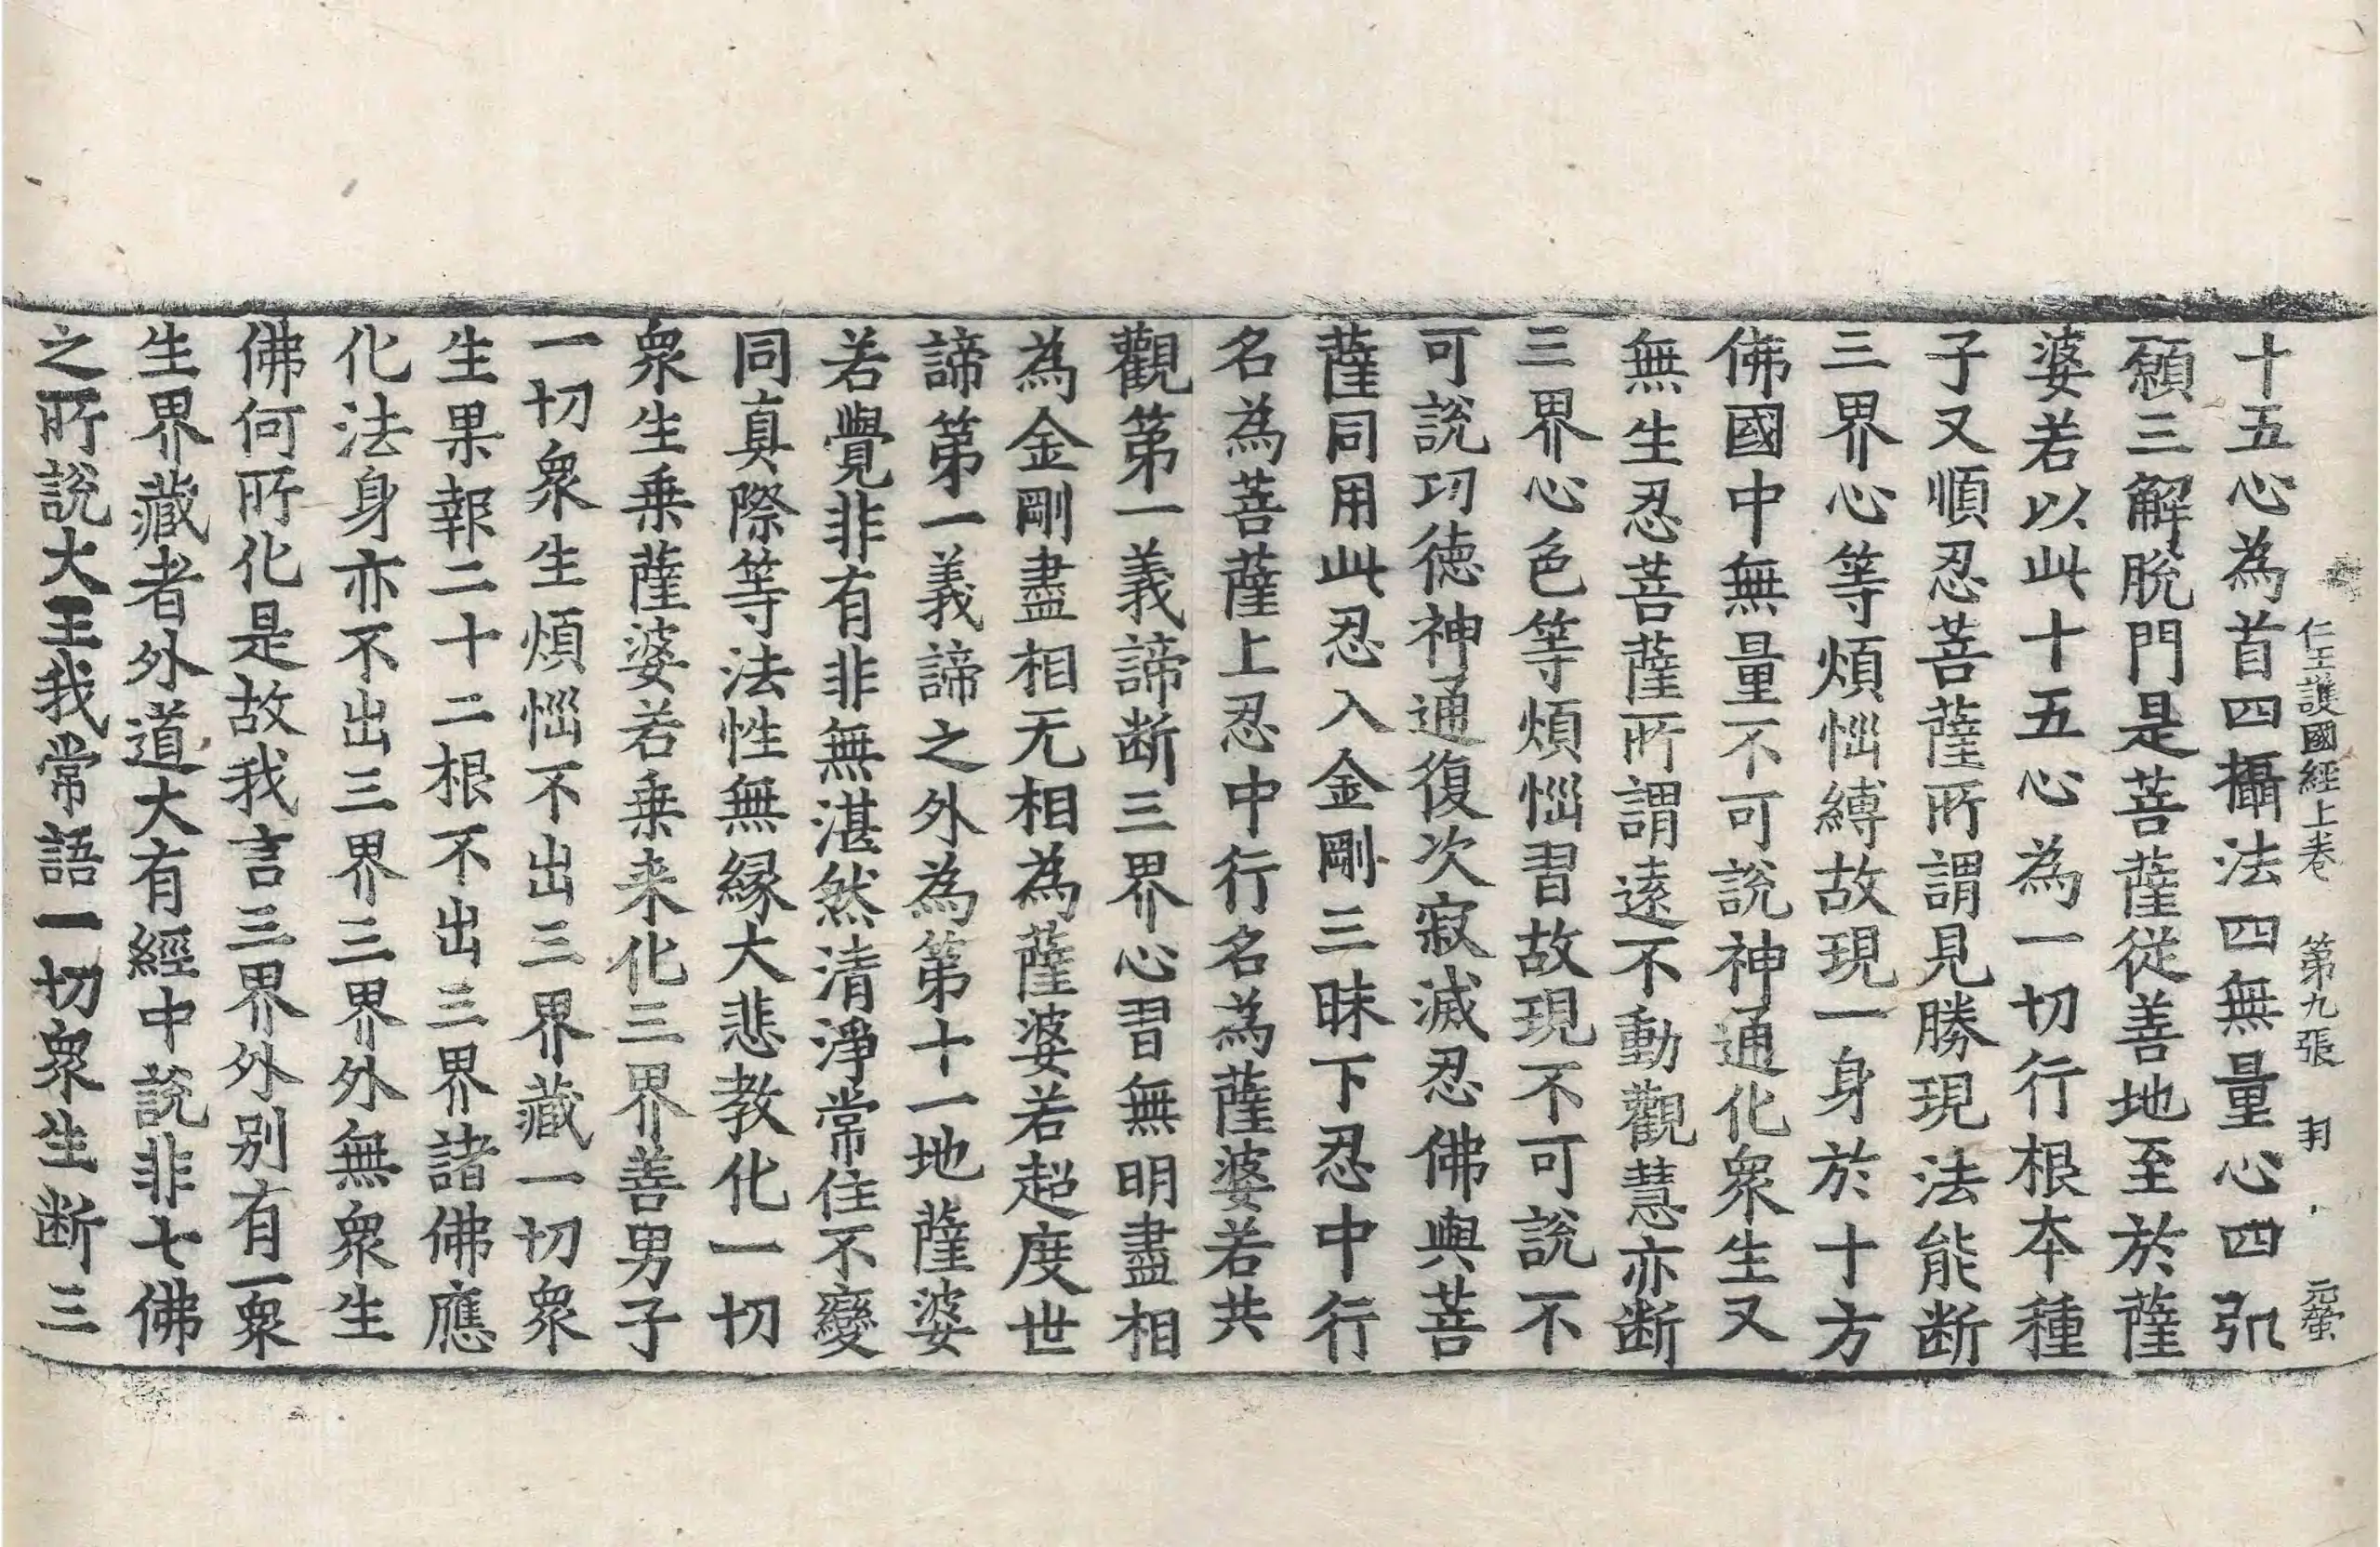 仁王護國經上卷 第九張 羽 元螢
十五心為首四攝法四無量心四弘
願三解脫門是菩薩從善地至於薩
婆若以此十五心為一切行根本種
子又順忍菩薩所謂見勝現法能断
三界心等煩惱縛故現一身於十方
佛國中無量不可說神通化衆生又
無生忍菩薩所謂遠不動觀慧亦断
三界心色等煩惱習故現不可說不
可說功德神通復次寂滅忍佛與菩
薩同用此忍入金剛三昧下忍中行
名為菩薩上忍中行名為薩婆若共
觀第一義諦断三界心習無明盡相
為金剛盡相无相為薩婆若超度世
諦第一義諦之外為第十一地薩婆
若覺非有非無湛然清淨常住不變
同真際等法性無緣大悲教化一切
衆生乗薩婆若乗来化三界善男子
一切衆生煩惱不出三界藏一切衆
生果報二十二根不出三界諸佛應
化法身亦不出三界三界外無衆生
佛何所化是故我言三界外别有一衆
生界藏者外道大有經中說非七佛
之所說大王我常語一切衆生断三